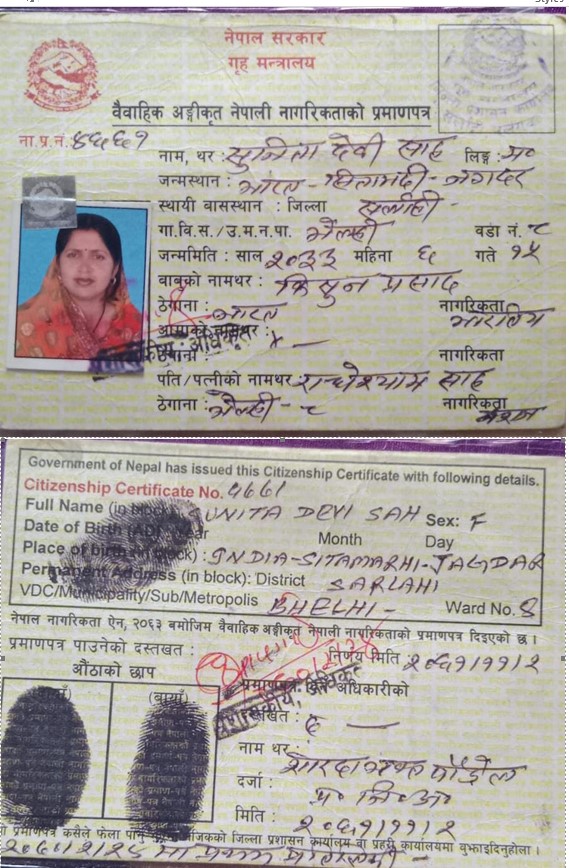 नेपाल सरकार
गृह मन्त्रालय
वैवाहिक अङ्गीकृत नेपाली नागरिकताको प्रमाणपत्र
ना.प्र.नं. ४६६१
नाम, थर : सुनिता देवी साह लिङ्ग : म०
जन्मस्थान : भारत - सितामढी - जगदर
स्थायी वासस्थान : जिल्ला सर्लाही -
गा.वि.स./उ.म.न.पा. भेल्ही वडा नं. ८
जन्ममिति : साल २०३३ महिना ६ गते १५
बाबुको नामथर : किसुन प्रसाद
ठेगाना : भारत नागरिकता भारतिय
आमाको नामथर : x —
ठेगाना नागरिकता
पति/पत्नीको नामथर राधेश्याम साह
ठेगाना : भेल्ही - ८ नागरिकता
Government of Nepal has issued this Citizenship Certificate with following details.
Citizenship Certificate No. 4661
Full Name (in block) SUNITA DEVI SAH Sex: F
Date of Birth (AD): Year Month Day
Place of birth (in block) : INDIA-SITAMARHI-JAGDAR
Permanent Address (in block): District SARLAHI
VDC/Municipality/Sub/Metropolis BHELHI - Ward No. 8
नेपाल नागरिकता ऐन, २०६३ बमोजिम वैवाहिक अङ्गीकृत नेपाली नागरिकताको प्रमाणपत्र दिइएको छ।
प्रमाणपत्र पाउनेको दस्तखत : निर्णय मिति
औंठाको छाप प्रमाणपत्र दिने अधिकारीको
(बायाँ) दस्तखत :
नाम थर :
दर्जा : प्र० जि० अ०
मिति :
यो प्रमाणपत्र कसैले फेला पारे नजिकको जिल्ला प्रशासन कार्यालय वा प्रहरी कार्यालयमा बुझाइदिनुहोला।